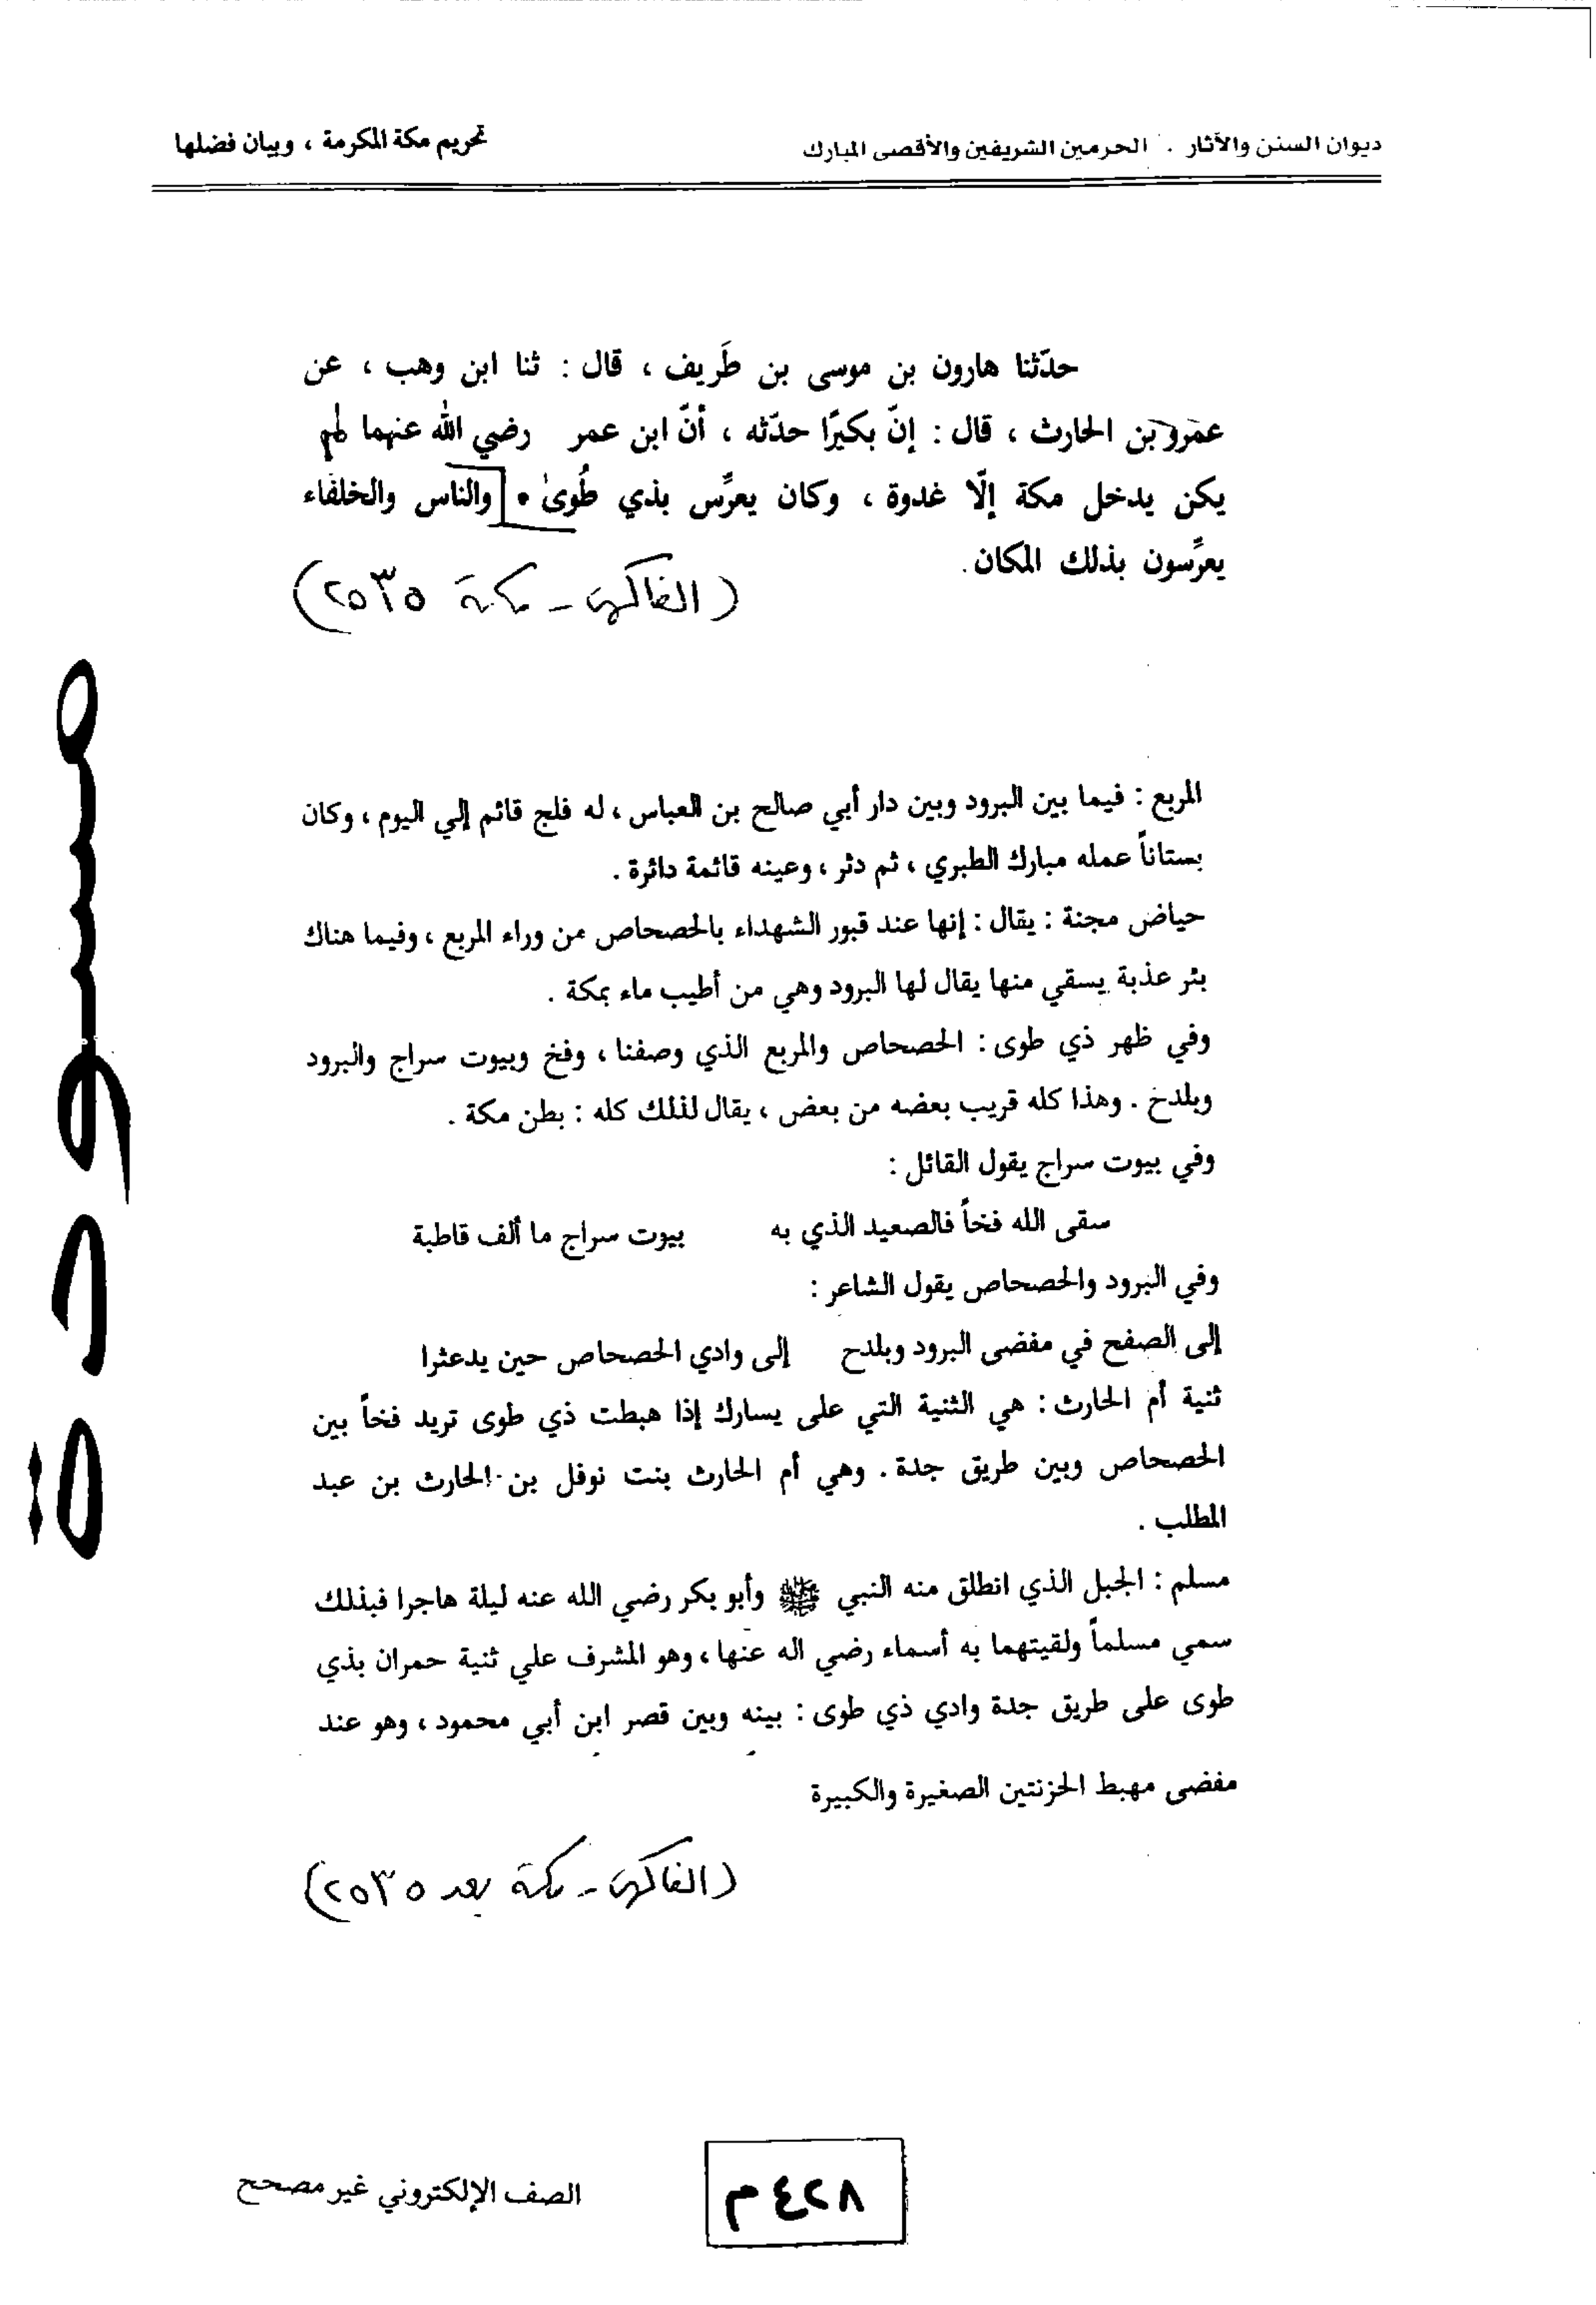 ديوان السنن والآثار . الحرمين الشريفين والأقصى المبارك
تحريم مكة المكرمة ، وبيان فضلها
حدّثنا هارون بن موسى بن طَريف ، قال : ثنا ابن وهب ، عن
عمرو بن الحارث ، قال : إنّ بكيرًا حدّثه ، أنّ ابن عمر رضي الله عنهما لم
يكن يدخل مكة إلّا غدوة ، وكان يعرِّس بذي طُوىٰ • والناس والخلفاء
يعرِّسون بذلك المكان .
( الفاكهي - مكة ٢٥٣٥ )
مسودة
المربع : فيما بين البرود وبين دار أبي صالح بن العباس ، له فلج قائم إلي اليوم ، وكان
بستاناً عمله مبارك الطبري ، ثم دثر ، وعينه قائمة دائرة .
حياض مجنة : يقال : إنها عند قبور الشهداء بالحصحاص من وراء المربع ، وفيما هناك
بئر عذبة يسقي منها يقال لها البرود وهي من أطيب ماء بمكة .
وفي ظهر ذي طوى : الحصحاص والمربع الذي وصفنا ، وفخ وبيوت سراج والبرود
وبلدخ . وهذا كله قريب بعضه من بعض ، يقال لذلك كله : بطن مكة .
وفي بيوت سراج يقول القائل :
سقى الله فخاً فالصعيد الذي به بيوت سراج ما ألف قاطبة
وفي البرود والحصحاص يقول الشاعر :
إلى الصفح في مفضى البرود وبلدح إلى وادي الحصحاص حين يدعثرا
ثنية أم الحارث : هي الثنية التي على يسارك إذا هبطت ذي طوى تريد فخاً بين
الحصحاص وبين طريق جدة . وهي أم الحارث بنت نوفل بن الحارث بن عبد
المطلب .
مسلم : الجبل الذي انطلق منه النبي ﷺ وأبو بكر رضي الله عنه ليلة هاجرا فبذلك
سمي مسلماً ولقيتهما به أسماء رضي اله عنها ، وهو المشرف علي ثنية حمران بذي
طوى على طريق جدة وادي ذي طوى : بينه وبين قصر ابن أبي محمود ، وهو عند
مفضى مهبط الحزنتين الصغيرة والكبيرة
( الفاكهي - مكة بعد ٢٥٣٥ )
٤٢٨ م
الصف الإلكتروني غير مصحح